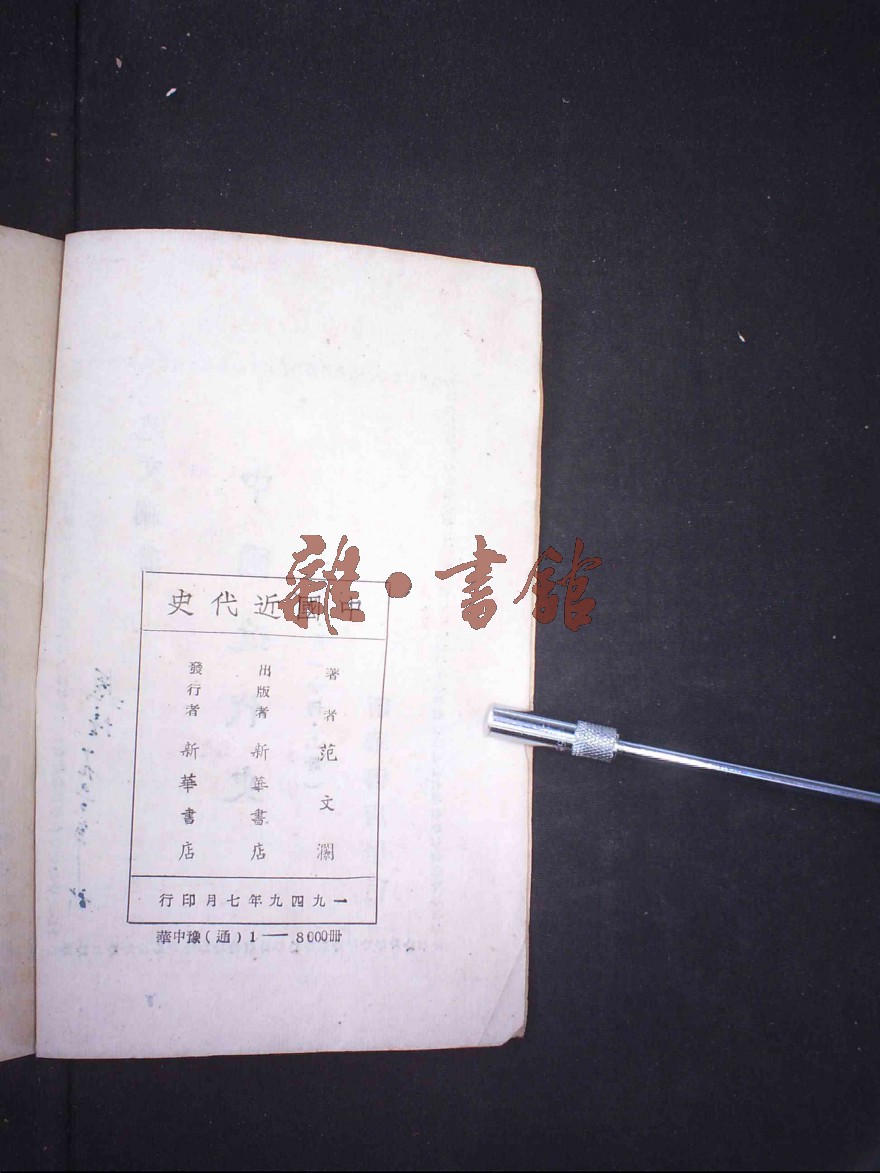 雜·書館
中國近代史
著者 范文瀾
出版者 新華書店
發行者 新華書店
一九四九年七月印行
華中豫(通)1——8000冊